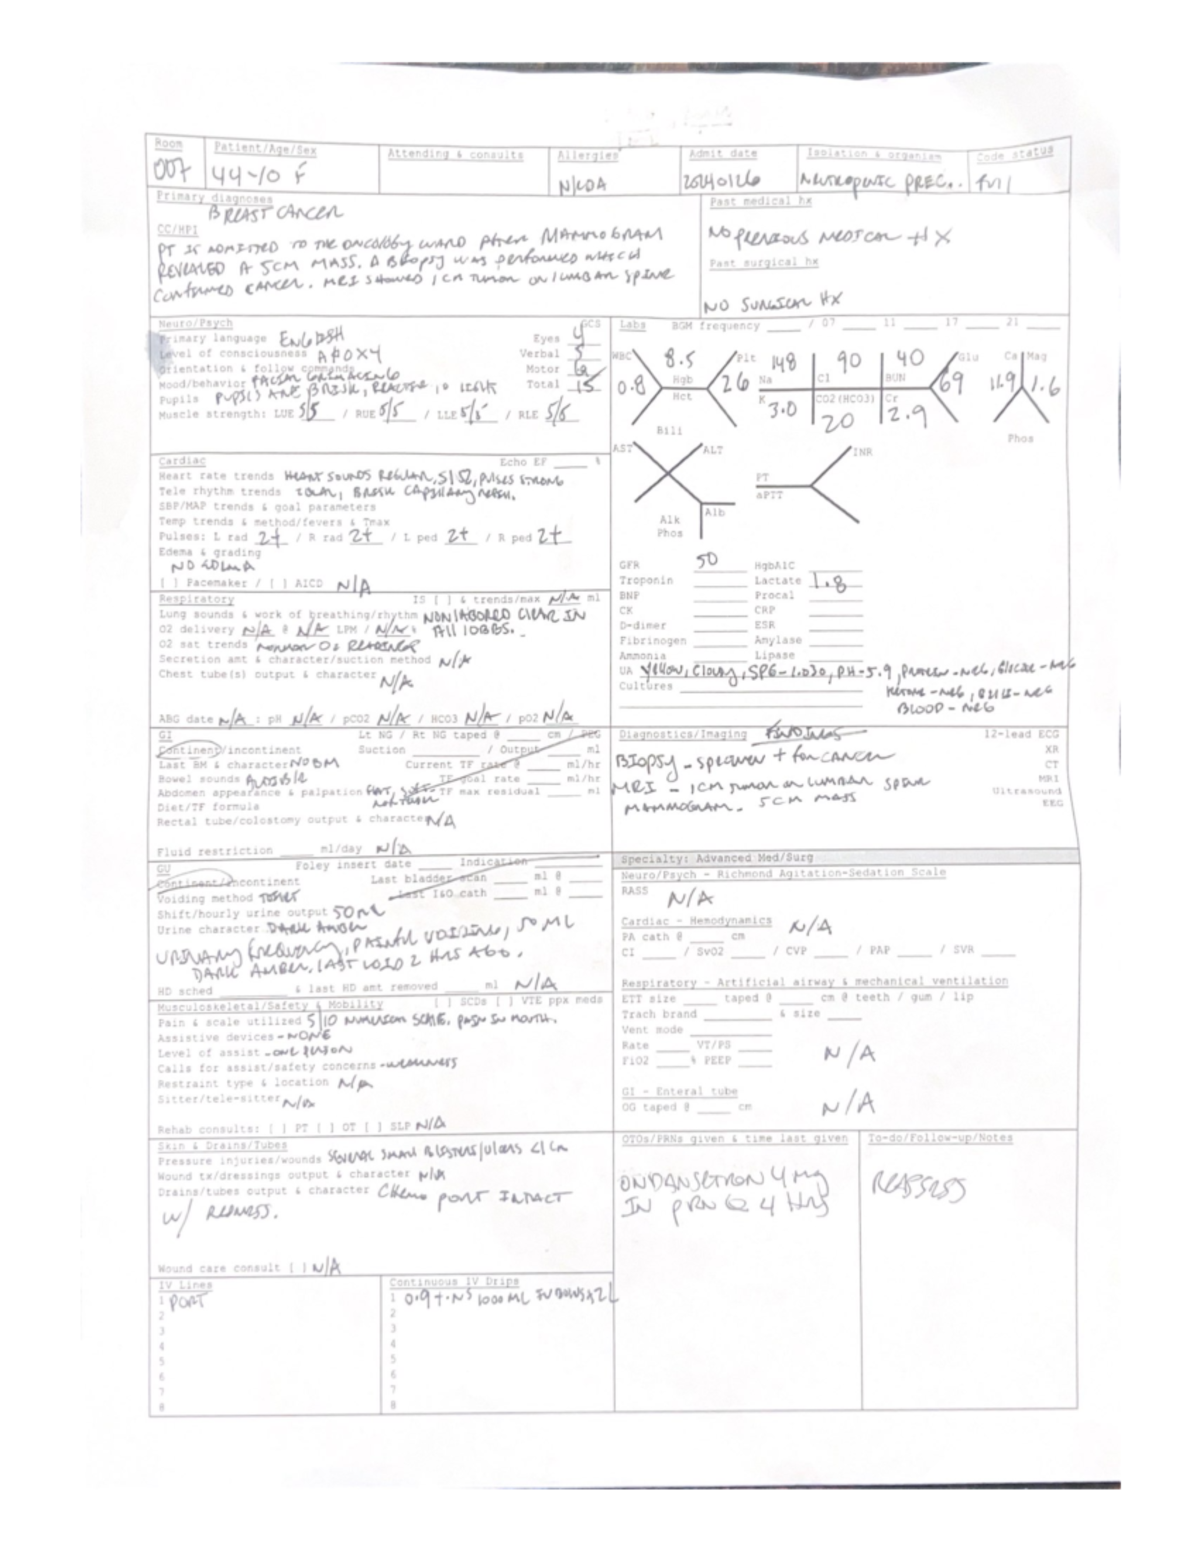 Room
007
Patient/Age/Sex
44-yo F
Attending & consults
Allergies
NKDA
Admit date
20240126
Isolation & organism
NEUTROPENIC PREC..
Code status
full
Primary diagnoses
BREAST CANCER
CC/HPI
PT IS ADMITTED TO THE ONCOLOGY WARD AFTER MAMMOGRAM
REVEALED A 5CM MASS. A Biopsy was performed which
confirmed CANCER. MRI showed 1cm tumor on lumbar spine
Past medical hx
NO PREVIOUS MEDICAL HX
Past surgical hx
NO SURGICAL HX
Neuro/Psych
GCS
Primary language ENGLISH
Eyes 4
Level of consciousness A&OX4
Verbal 5
Orientation & follow commands
Motor 6
Mood/behavior FACIAL GRIMACING
Total 15
Pupils PUPILS ARE BRISK, REACTIVE TO LIGHT
Muscle strength: LUE 5/5 / RUE 5/5 / LLE 5/5 / RLE 5/5
Labs BGM frequency ____ / 07 ____ 11 ____ 17 ____ 21 ____
WBC 0.8
8.5 Hgb
Hct
Plt 26
Na 148
K 3.0
Cl 90
CO2(HCO3) 20
BUN 40
Cr 2.9
Glu 69
Ca 11.9
Mag 1.6
Phos
Bili
AST
ALT
Alk Phos
Alb
PT
aPTT
INR
Cardiac
Echo EF ____ %
Heart rate trends HEART SOUNDS REGULAR, S1S2, PULSES STRONG
Tele rhythm trends EQUAL, BRISK CAPILLARY REFILL.
SBP/MAP trends & goal parameters
Temp trends & method/fevers & Tmax
Pulses: L rad 2+ / R rad 2+ / L ped 2+ / R ped 2+
Edema & grading
NO EDEMA
[ ] Pacemaker / [ ] AICD N/A
GFR 50
HgbA1C
Troponin
Lactate 1.8
BNP
Procal
CK
CRP
D-dimer
ESR
Fibrinogen
Amylase
Ammonia
Lipase
UA Yellow, Cloudy, SPG-1.030, pH-5.9, PROTEIN-NEG, GLUCOSE-NEG
Cultures
KETONE-NEG, BILI-NEG
BLOOD-NEG
Respiratory
IS [ ] & trends/max N/A ml
Lung sounds & work of breathing/rhythm NONLABORED CLEAR IN
O2 delivery N/A @ N/A LPM / N/A % All lobes.
O2 sat trends NORMAL O2 READINGS
Secretion amt & character/suction method N/A
Chest tube(s) output & character
N/A
ABG date N/A : pH N/A / pCO2 N/A / HCO3 N/A / pO2 N/A
GI
Lt NG / Rt NG taped @ ____ cm / PEG
Continent/incontinent
Suction ____ / Output ____ ml
Last BM & character NO BM
Current TF rate @ ____ ml/hr
Bowel sounds AUDIBLE
TF goal rate ____ ml/hr
Abdomen appearance & palpation FLAT, SOFT
TF max residual ____ ml
Diet/TF formula
Rectal tube/colostomy output & character N/A
Fluid restriction ____ ml/day N/A
Diagnostics/Imaging FINDINGS
12-lead ECG
XR
CT
MRI
Ultrasound
EEG
BIOPSY - specimen + for CANCER
MRI - 1CM TUMOR ON LUMBAR SPINE
MAMMOGRAM - 5CM MASS
GU
Foley insert date ____ Indication ____
Continent/incontinent
Last bladder scan ____ ml @ ____
Voiding method TOILET
Last I&O cath ____ ml @ ____
Shift/hourly urine output 50 mL
Urine character DARK AMBER
URINARY frequency, PAINful VOIDING, 50 ML
DARK AMBER, LAST VOID 2 HRS AGO.
HD sched ____ & last HD amt removed ____ ml N/A
Specialty: Advanced Med/Surg
Neuro/Psych - Richmond Agitation-Sedation Scale
RASS N/A
Cardiac - Hemodynamics N/A
PA cath @ ____ cm
CI ____ / SvO2 ____ / CVP ____ / PAP ____ / SVR ____
Respiratory - Artificial airway & mechanical ventilation
ETT size ____ taped @ ____ cm @ teeth / gum / lip
Trach brand ____ & size ____
Vent mode ____
Rate ____ VT/PS ____
FiO2 ____% PEEP ____
N/A
GI - Enteral tube
OG taped @ ____ cm
N/A
Musculoskeletal/Safety & Mobility
[ ] SCDs [ ] VTE ppx meds
Pain & scale utilized 5/10 NUMERICAL SCALE. PAIN IN MOUTH.
Assistive devices - NONE
Level of assist - ONE PERSON
Calls for assist/safety concerns - WEAKNESS
Restraint type & location N/A
Sitter/tele-sitter N/A
Rehab consults: [ ] PT [ ] OT [ ] SLP N/A
Skin & Drains/Tubes
Pressure injuries/wounds SEVERAL SMALL BLISTERS/ULCERS <1cm
Wound tx/dressings output & character N/A
Drains/tubes output & character CHEMO PORT INTACT
W/ REDNESS.
Wound care consult [ ] N/A
OTOs/PRNs given & time last given
ONDANSETRON 4 mg
PRN Q 4 Hrs
To-do/Follow-up/Notes
REASSESS
IV Lines
1 PORT
2
3
4
5
6
7
8
Continuous IV Drips
1 0.9% NS 1000 ML IV BOLUS X2L
2
3
4
5
6
7
8